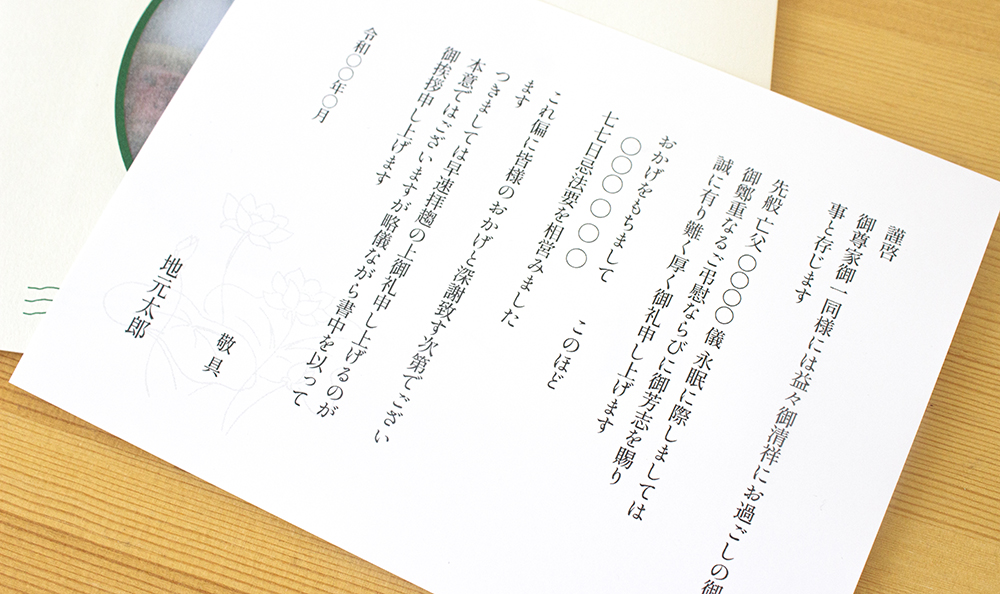 謹啓
御尊家御一同様には益々御清祥にお過ごしの御
事と存じます
先般 亡父 〇〇〇〇 儀 永眠に際しましては
御鄭重なるご弔慰ならびに御芳志を賜り
誠に有り難く厚く御礼申し上げます
おかげをもちまして このほど
〇〇〇〇〇〇
七七日忌法要を相営みました
これ偏に皆様のおかげと深謝致す次第でござい
ます
つきましては早速拝趨の上御礼申し上げるのが
本意ではございますが略儀ながら書中を以って
御挨拶申し上げます
敬具
令和〇〇年〇月
地元太郎